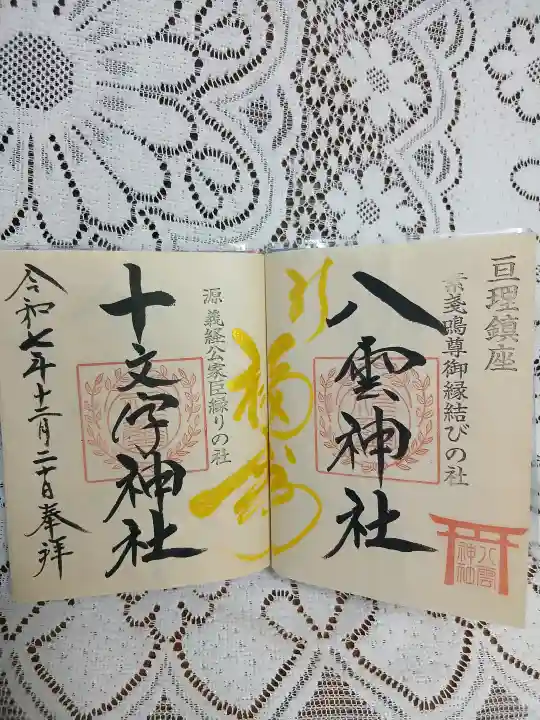 亘理鎮座
素戔鳴尊御縁結びの社
八雲神社
八雲
神社
福寿
源義経公家臣縁りの社
十文字神社
令和七年十二月二十日奉拝